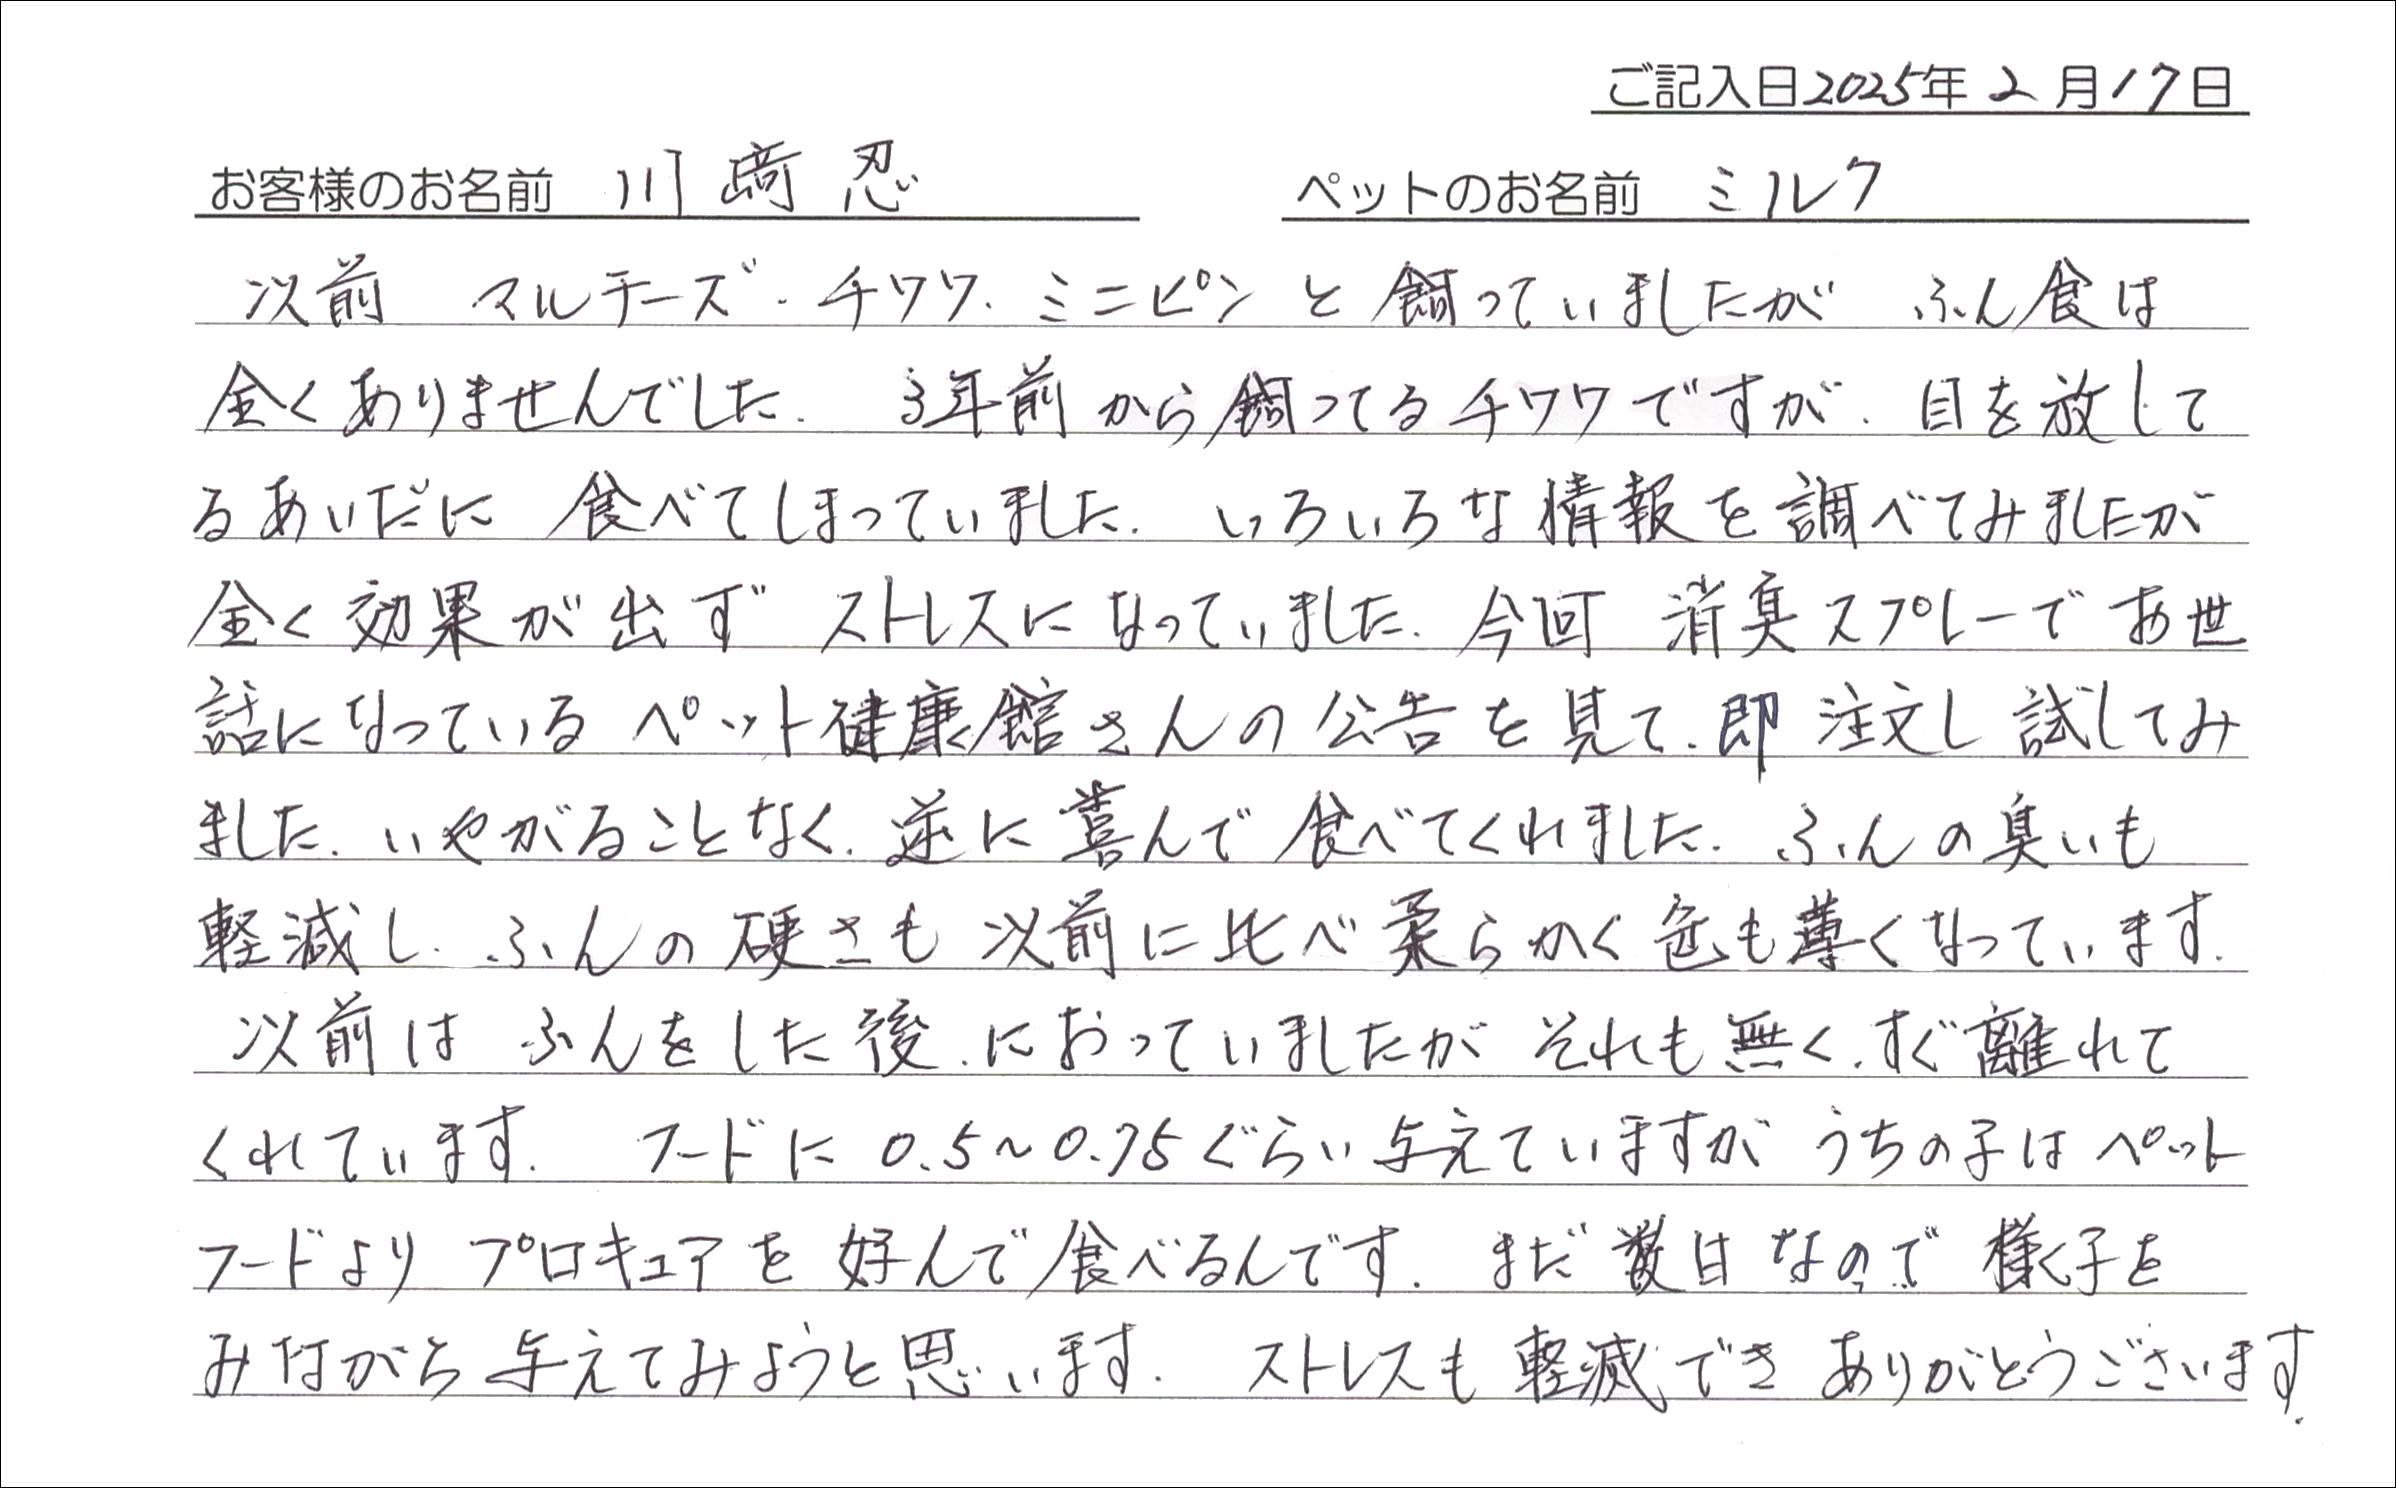 ご記入日2025年2月17日
お客様のお名前 川﨑 忍 ペットのお名前 ミルク
以前 マルチーズ・チワワ・ミニピンと飼っていましたが ふん食は
全くありませんでした。 3年前から飼ってるチワワですが、目を放して
るあいだに 食べてしまっていました。 いろいろな情報を調べてみましたが
全く効果が出ず ストレスになっていました。今回 消臭スプレーでお世
話になっているペット健康館さんの公告を見て、即 注文し 試してみ
ました。いやがることなく、逆に喜んで食べてくれました。ふんの臭いも
軽減し、ふんの硬さも以前に比べ柔らかく色も薄くなっています。
以前は ふんをした後、におっていましたが それも無く、すぐ離れて
くれています。 フードに0.5~0.75ぐらい与えていますが うちの子はペット
フードより プロキュアを好んで食べるんです。 まだ数日なので様子を
みながら与えてみようと思います。 ストレスも軽減でき ありがとうございます。